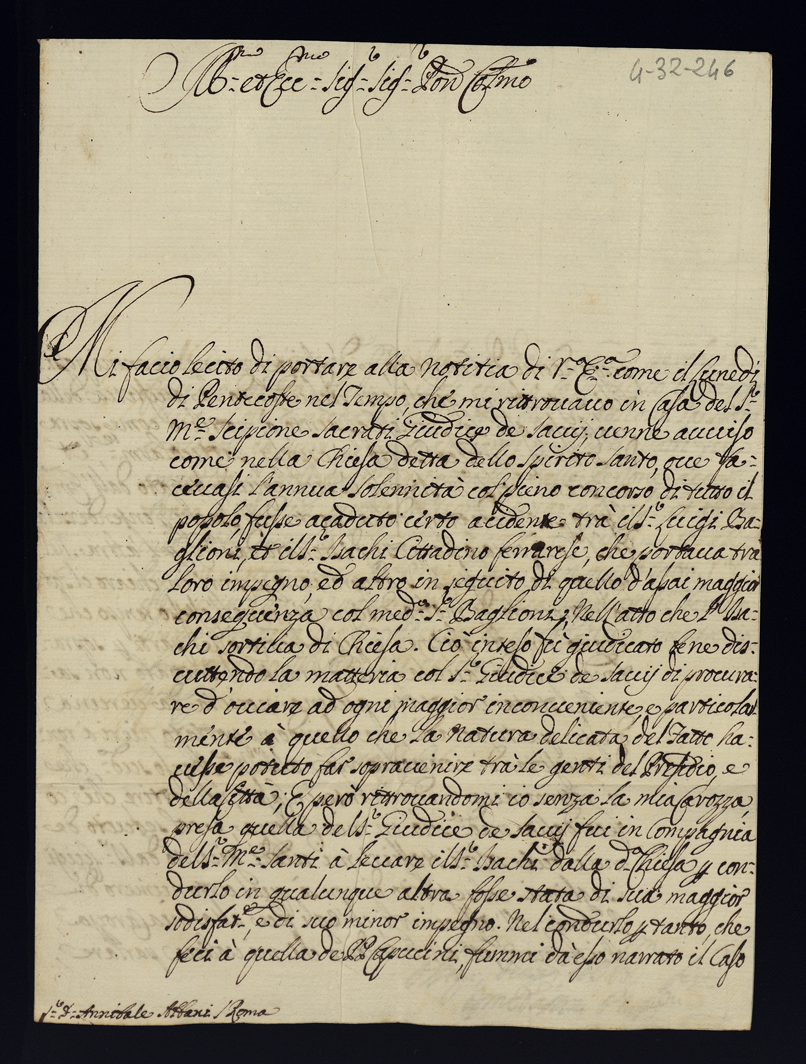 4-32-246
Ill.mo et Ecc.mo Sig.r Sig.r Pron Col.mo
Mi facio lecito di portare alla notitia di V.a E.a come il lunedi
di Pentecoste nel Tempo, che mi ritrovavo in Casa del S.r
M.e Scipione Sacrati Giudice de Savij, venne avviso
come nella Chiesa detta dello Spirito Santo, ove fa-
cevasi l'annua solennità col pieno concorso di tutto il
popolo, fusse acaduto certo acidente trà il S.r Luigi Ba-
glioni, et il S.r Bachi Cittadino ferrarese, che portava tra
loro impegno, ed altro in seguito di quello d'assai maggior
conseguenza col med.o S.r Baglioni, nell'atto che il Ba-
chi sortiva di Chiesa. Ciò inteso fù giudicato bene dis-
cuttendo la matteria col S.r Giudice de Savij di procura-
re d'ovviare ad ogni maggior inconveniente, e particolar
mente à quello che la natura delicata del fatto ha-
vesse potuto far sopravenire trà le genti del Presidio, e
della Città; E però ritrovandomi io senza la mia Carozza,
presa quella del S.r Giudice de Savij fui in Compagnia
del S.r M.e Santi à leccare il S.r Bachi dalla d.a Chiesa p con-
durlo in qualunque altra fosse stata di sua maggior
sodisfar.e, e di suo minor impegno. Nel condurlo p tanto, che
feci à quella de PP. Capuccini, fummi dà esso narrato il Caso
S.r D. Annibale Albani Roma